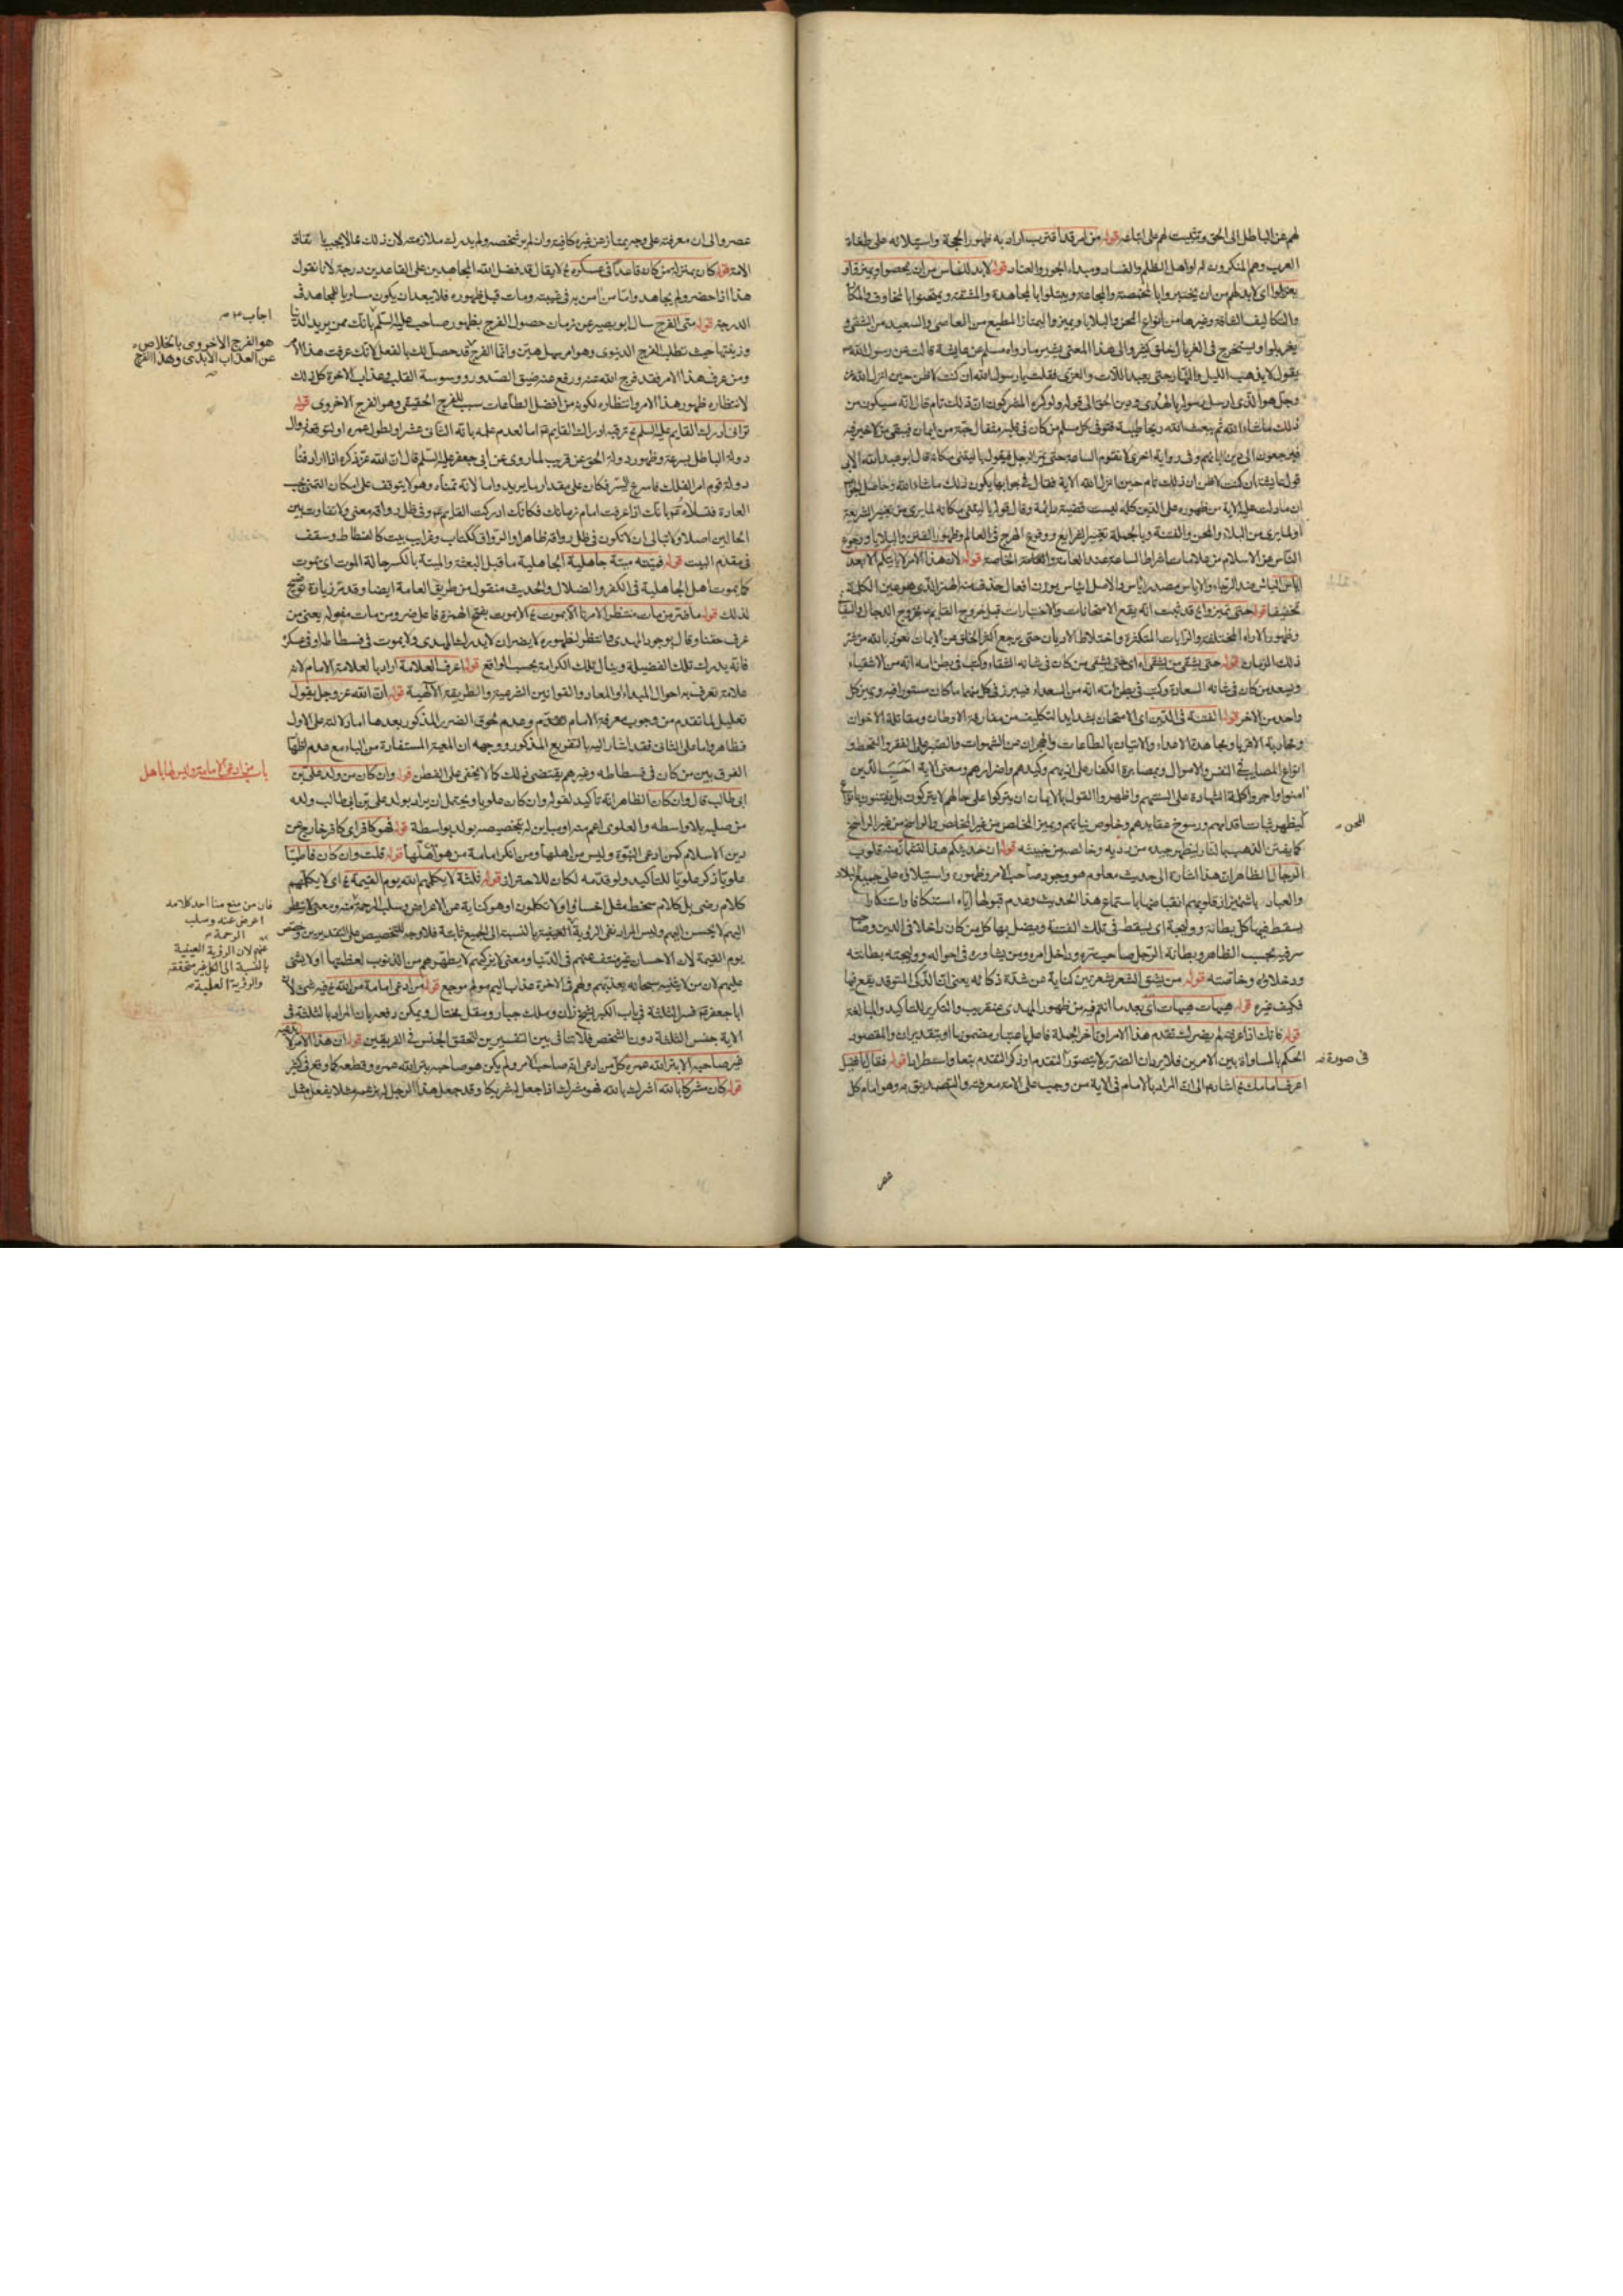 لهم عن الباطل الى الحق وتثبيت لهم على اتباعه قوله من امر قد اقترب اراد به ظهور الحجة واستيلائه على طغاة
العرب وهم المنكرون له او اهل الظلم والفساد ومبداء الجور والعناد قوله لابد للناس من ان يمحصوا ويميزوا و
يغربلوا اى لابد لهم من ان يختبروا بالمخمصة والمجاعة ويبتلوا بالمجاهدة والمشقة ويمتحنوا بالمخاوف والمكاره
والتكاليف الشاقة وغيرها من انواع المحن والبلايا ويميزوا ليمتاز المطيع من العاصى والسعيد من الشقى و
يغربلوا ويستخرج فى الغربال خلق كثير والى هذا المعنى يشير ما رواه مسلم عن عايشة قالت عن رسول الله ص
يقول لا يذهب الليل والنهار حتى يعبد اللات والعزى فقلت يا رسول الله ان كنت لاظن حين انزل الله عز
وجل هو الذى ارسل رسوله بالهدى ودين الحق الى قوله ولو كره المشركون ان ذلك تام قال انه سيكون من
ذلك ما شاء الله ثم يبعث الله ريحا طيبة فتوفى كل مسلم من كان فى قلبه مثقال حبة من ايمان فيبقى من لا خير فيه
فيرجعون الى دين ابائهم وفى رواية اخرى لا تقوم الساعة حتى يمر الرجل فيقول يا ليتنى مكانه قال ابو عبد الله الابى
قول عايشة ان كنت لاظن ان ذلك تام حين انزل الله الاية فقال فى جوابها يكون ذلك ما شاء الله وحاصل الجواب
ان ما دلت عليه الاية من ظهوره على الدين كله ليست قضية دائمة وقال قوله يا ليتنى مكانه لما يرى من تغيير الشريعة
او لما يرى من البلاء والمحن والفتنة وبالجملة تغيير الشرايع ووقوع الهرج فى العالم وظهور الفتن والبلايا ورجوع
الناس عن الاسلام من علامات اشراط الساعة عند العامة والخاصة قوله لان هذا الامر لا ياتيكم الا بعد
اياس
تخفيفا قوله حتى تميزوا قد ثبت انه يقع الامتحانات والاختبارات قبل خروج القايم ع بخروج الدجال والسفيانى
وظهور الاراء المختلفة والرايات المتكثرة واختلاط الاديان حتى يرجع اكثر الخلق عن الايمان نعوذ بالله من شر
ذلك الزمان قوله حتى يشقى من يشقى اى حتى يشقى من كان فى شانه الشقاء وكتب فى بطن امه انه من الاشقياء
ويسعد من كان فى شانه السعادة وكتب فى بطن امه انه من السعداء فيبرز فى كل منهما ما كان مستورا فيه ويميز كل
واحد من الاخر قوله الفتنة فى الدين اى الامتحان بشدايد التكليف من مفارقة الاوطان ومقاتلة الاخوان
ومحاربة الاقرباء ومجاهدة الاعداء والاتيان بالطاعات والهجران عن الشهوات والصبر على الفقر والقحط و
انواع المصايب فى النفس والاموال وبمصابرة الكفار على اذيهم وكيدهم واضرارهم ومعنى الاية احسب الذين
امنوا واجروا كلمة الشهادة على السنتهم واظهروا القول بالايمان ان يتركوا على حالهم لا يتركون بل يفتنون بانواع
المحن
ليظهر ثبات اقدامهم ورسوخ عقايدهم وخلوص نياتهم ويميز الخالص من غير الخالص والراسخ من غير الراسخ
كما يفتن الذهب بالنار ليظهر جيده من رديه وخالصه من خبيثه قوله ان حديثكم هذا لتشمأز منه قلوب
الرجال الظاهر ان هذا اشارة الى حديث معلوم هو وجود صاحب الامر وظهوره واستيلاؤه على جميع البلاد
والعباد واشمئزاز قلوبهم انقباضها باستماع هذا الحديث وعدم قبولها اياه استنكافا واستنكارا
يسقط فيها كل بطانة ووليجة اى يسقط فى تلك الفتنة ويضل بها كل من كان داخلا فى الدين وصاحب
سر فيه بحسب الظاهر وبطانة الرجل صاحب سره وداخل امره ومن يشاوره فى احواله ووليجته بطانته
ودخلاؤه وخاصته قوله من يشق الشعر بشعرتين كناية عن شدة ذكائه يعنى ان الذكى المتوقد يقع فيها
فكيف غيره قوله هيهات هيهات اى بعد ما انتم فيه من ظهور المهدى عن قريب والتكرير للتاكيد والمبالغة
قوله فانك اذا عرفته لم يضرك تقدم هذا الامر او تاخر الجملة فاعل باعتبار مضمونها او بتقدير ان والمقصود
فى صورة
الحكم بالمساواة بين الامرين فلا يرد ان الضرر لا يتصور التقدم وذكر التقدم تبعا واستطرادا قوله فقال يا فضيل
اعرف امامك اشارة الى ان المراد بالامام فى الاية من وجب على الامة معرفته والتصديق به وهو امام كل
عصر
عصر والى ان معرفته على وجه يمتاز عن غيره كافية وان لم ير شخصه ولم يدرك ملازمته لان ذلك مما لا يجب باتفاق
الامة قوله كان بمنزلة من كان قاعدا فى عسكره لا يقال قد فضل الله المجاهدين على القاعدين درجة لانا نقول
هذا اذا حضر ولم يجاهد واما من امن به فى غيبته ومات قبل ظهوره فلا يبعد ان يكون مساويا للمجاهد فى
الدرجة قوله متى الفرج سال ابو بصير عن زمان حصول الفرج بظهور صاحب عليه السلم بانك ممن يريد الدنيا
اجاب
وزينتها حيث تطلب الفرج الدنيوى وهو امر سهل هين وانما الفرج قد حصل لك بالفعل لانك عرفت هذا الامر
هو الفرج الاخروى بالخلاص
عن العذاب الابدى وهذا الفرج
ومن عرف هذا الامر فقد فرج الله عنه ورفع عنه ضيق الصدور ووسوسة القلب وعذاب الاخرة كل ذلك
لانتظاره ظهور هذا الامر وانتظاره لكونه من افضل الطاعات سبب للفرج الحقيقى وهو الفرج الاخروى قوله
ترانى ادرك القايم عليه السلم ترقبه ادراك القايم ع اما لعدم علمه بانه الثانى عشر او لطول عمره او لتوقعه زوال
دولة الباطل بسرعة وظهور دولة الحق عن قريب لما روى عن ابى جعفر عليه السلم قال ان الله عز ذكره اذا اراد فناء
دولة قوم امر الفلك فاسرع السير فكان على مقدار ما يريد واما لانه تمناه وهو لا يتوقف على امكان المتمنى بحسب
العادة فسلاه ع بانك اذا عرفت امام زمانك فكانك ادركت القايم ع وفى ظل رواقه معنى ولا تفاوت بين
الحالين اصلا ولا تبالى ان لا تكون فى ظل رواقه ظاهرا والرواق ككتاب وغراب بيت كالفسطاط وسقف
فى مقدم البيت قوله فميتته ميتة جاهلية الجاهلية ما قبل البعثة والميتة بالكسر حالة الموت اى يموت
كما يموت اهل الجاهلية فى الكفر والضلال والحديث منقول من طريق العامة ايضا وقد مر زيادة توضيح
لذلك قوله ما ضر من مات منتظرا لامرنا الا يموت الا يموت بفتح الهمزة فاعل ضر ومن مات مفعوله يعنى من
عرف حقنا وقال بوجود المهدى وانتظر لظهوره لا يضره ان لا يدرك المهدى ولا يموت فى فسطاطه او فى عسكره
فانه يدرك تلك الفضيلة وينال تلك الكرامة بحسب الواقع قوله اعرف العلامة اراد بالعلامة الامام لانه
علامة تعرف به احوال المبداء والمعاد والقوانين الشرعية والطريقة الالهية قوله ان الله عز وجل يقول
تعليل لما تقدم من وجوب معرفة الامام وعدم لحوق الضرر المذكور بعدها اما دلالته على الاول
فظاهر واما على الثانى فقد اشار اليه بالتفريع المذكور ووجهه ان المعية المستفادة من الباء مع عدم اظهار
الفرق بين من كان فى فسطاطه وغيرهم يقتضى ذلك كما لا يخفى على الفطن قوله وان كان من ولد على بن
باب من ادعى الامامة وليس لها باهل
ابى طالب قال وان كان الظاهر انه تاكيد لقوله وان كان علويا ويحتمل ان يراد بولد على بن ابى طالب ولده
من صلبه بلا واسطة والعلوى اعم منه او مباين له بتخصيصه بولد بواسطة قوله فهو كافر اى كافر خارج عن
دين الاسلام كمن ادعى النبوة وليس من اهلها ومن انكر امامة من هو اهلها قوله قلت وان كان فاطميا
علويا ذكر علويا للتاكيد ولو قدمه لكان للاحتراز قوله ثلثة لا يكلمهم الله يوم القيمة اى لا يكلمهم
كلام رضى بل كلام سخط مثل اخسؤا ولا تكلمون او هو كناية عن الاعراض وسلب الرحمة عنهم ومعنى لا ينظر
فان من منع منا احد كلامه
اعرض عنه وسلب
الرحمة
اليهم لا يحسن اليهم وليس المراد نفى الرؤية العينية بالنسبة الى الجميع ثابتة فلا وجه للتخصيص على التقديرين وخص
عنهم لان الرؤية العينية
بالنسبة الى الكل غير متحققة
والرؤية العلمية
يوم القيمة لان الاحسان غير منتف عنهم فى الدنيا ومعنى لا يزكيهم لا يطهرهم من الذنوب لعظمتها او لا يثنى
عليهم لان من لا يثنى سبحانه يعذبهم ولهم فى الاخرة عذاب اليم مولم موجع قوله من ادعى امامة من الله فيه شئ لان
ابا جعفر ع فسر الثلثة فى باب الكبر بشيخ زان وملك جبار ومقل مختال ويمكن رفعه بان المراد بالثلثة فى
الاية جنس الثلثة دون الشخص فلا تنافى بين التفسيرين لتحقق الجنس فى الفريقين قوله ان هذا الامر لا يدعيه
غير صاحبه الا بتر الله عمره كل من ادعى انه صاحب الامر ولم يكن هو صاحبه بتر الله عمره وقطعه كما وقع فى كثير
قوله كان مشركا بالله اشرك بالله فهو مشرك اذا جعل له شريكا وقد جعل هذا الرجل له بزعمه مثلا يفعل مثل